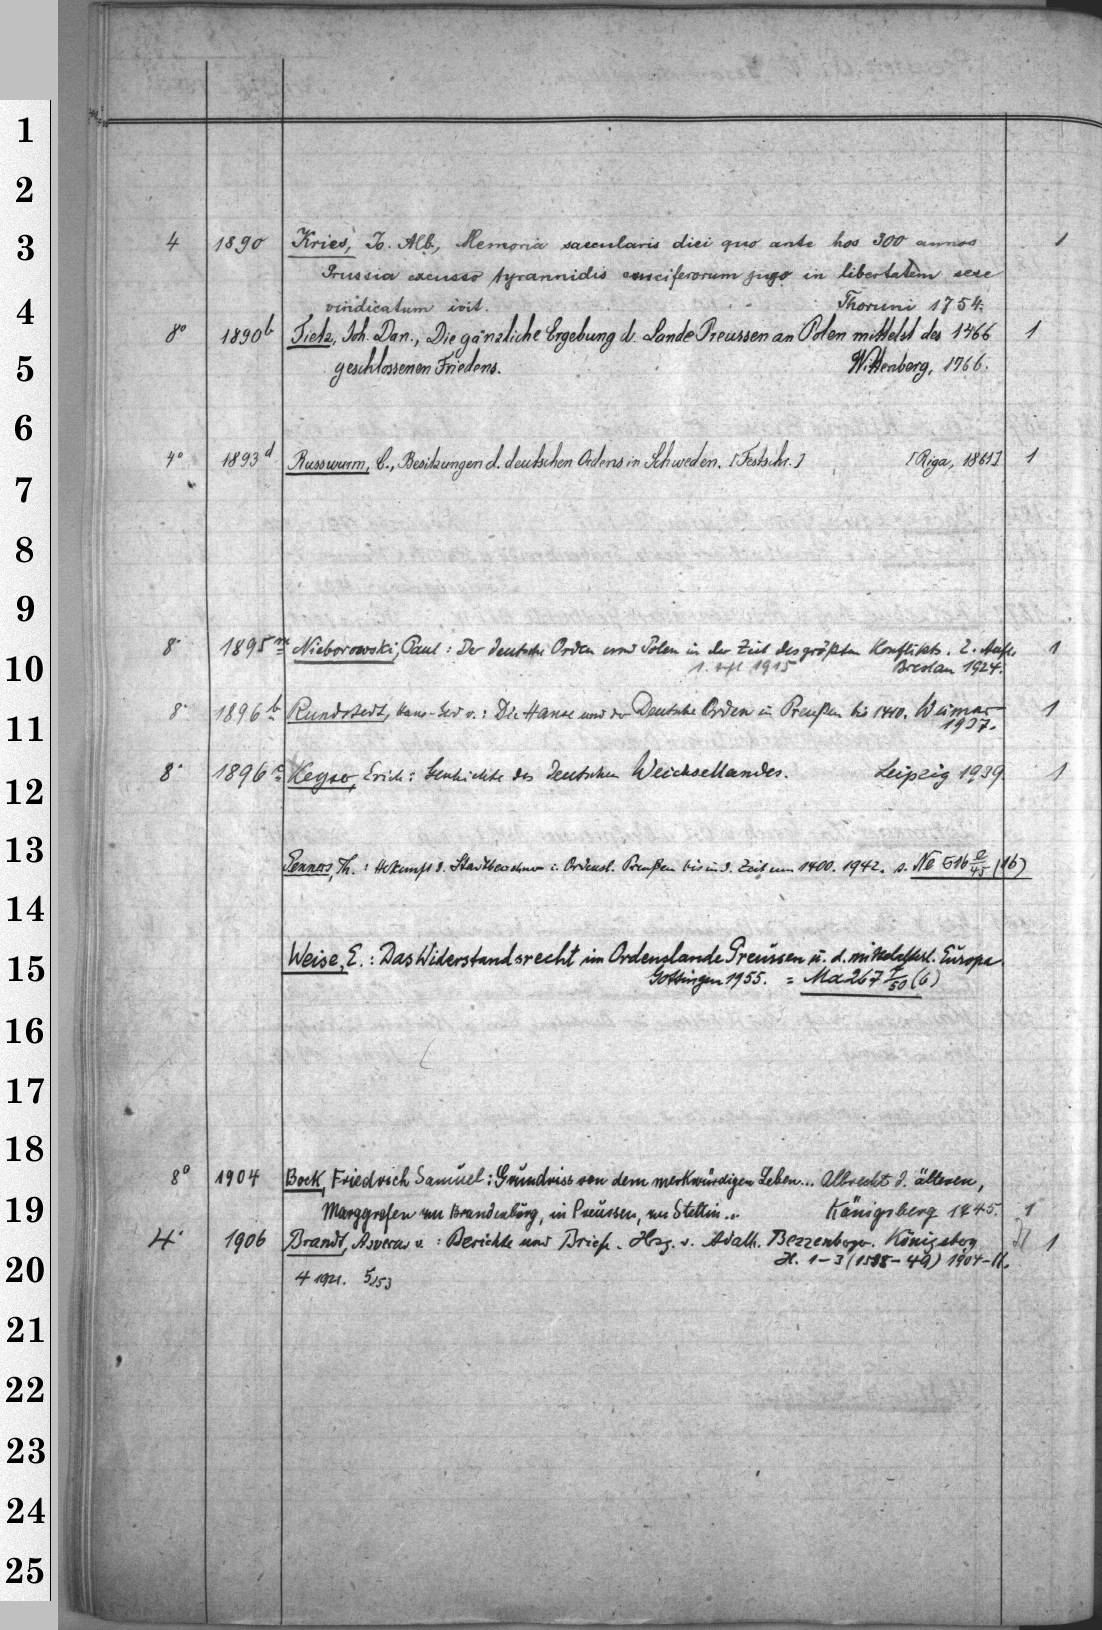 1
2
3
4
5
6
7
8
9
10
11
12
13
14
15
16
17
18
19
20
21
22
23
24
25
4 1890 Kries, Jo. Alb., Memoria saecularis diei quo ante hos 300 annos 1
Prussia excusso tyrannidis cruciferorum jugo in libertatem sese
vindicatum ivit. Thoruni 1754.
8° 1890b Tietz, Joh. Dan., Die gänzliche Ergebung d. Lande Preussen an Polen mittelst des 1466 1
geschlossenen Friedens. Wittenberg, 1766.
4° 1893d Russwurm, C., Besitzungen d. deutschen Ordens in Schweden. [Festschr.] [Riga, 1861] 1
8° 1895m Nieborowski, Paul: Der deutsche Orden und Polen in der Zeit des größten Konflikts. 2. Aufl. 1
1. Aufl 1915 Breslau 1924.
8° 1896b Rundstedt, Hans-Gerd v.: Die Hanse und der Deutsche Orden in Preußen bis 1410. Weimar 1
1937.
8° 1896c Keyser, Erich: Geschichte des deutschen Weichsellandes. Leipzig 1939. 1
Penners, Th.: Herkunft d. Stadtbewohner i. Ordensl. Preußen bis in d. Zeit um 1400. 1942. s. Ne 516 (16)
Weise, E.: Das Widerstandsrecht im Ordenslande Preussen u. d. mittelalterl. Europa
Göttingen 1955. = Md 267 (6)
8° 1904 Bock, Friedrich Samuel: Grundriss von dem merkwürdigen Leben... Albrecht d. älteren,
Marggrafen zu Brandenburg, in Preussen, zu Stettin... Königsberg 1745. 1
4° 1906 Brandt, Asverus v.: Berichte und Briefe. Hsg. v. Adalb. Bezzenberger. Königsberg 1
H. 1-3 (1538-49) 1904-11.
4 1921. 5/153